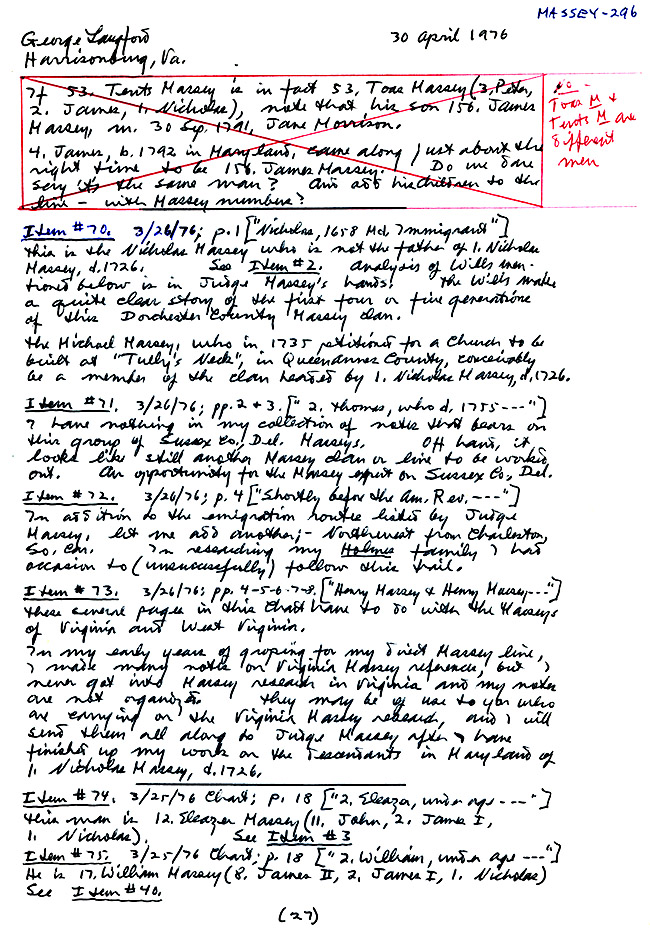 MASSEY-296
George Langford
30 April 1976
Harrisonburg, Va.
If 53. Tents Massey is in fact 53. Toas Massey (3. Peter,
2. James, 1. Nicholas), note that his son 156. James
Massey, m. 30 Sep. 1791, Jane Morrison.
4. James, b. 1792 in Maryland, came along just about the
right time to be 156. James Massey. Do we dare
say it's the same man? And add his children to the
line - with Massey numbers?
No -
Toas M &
Tents M are
different
men
Item #70. 3/26/76; p. 1 ["Nicholas, 1658 Md. Immigrant"]
This is the Nicholas Massey who is not the father of 1. Nicholas
Massey, d. 1726. See Item #2. Analysis of Wills men-
tioned below is in Judge Massey's hands. The Wills make
a quite clear story of the first four or five generations
of this Dorchester County Massey clan.
The Michael Massey, who in 1735 petitioned for a Church to be
built at "Tully's Neck", in Queen Annes County, conceivably
be a member of the clan headed by 1. Nicholas Massey, d. 1726.
Item #71. 3/26/76; pp. 2 + 3. ["2. Thomas, who d. 1755 ---"]
I have nothing in my collection of notes that bears on
this group of Sussex Co., Del. Masseys. Off hand, it
looks like still another Massey clan or line to be worked
out. An opportunity for the Massey expert on Sussex Co., Del.
Item #72. 3/26/76; p. 4 ["Shortly before the Am. Rev. ---"]
In addition to the emigration routes listed by Judge
Massey, let me add another; - Northwest from Charleston,
So. Car. In researching my Holmes family I had
occasion to (unsuccessfully) follow this trail.
Item #73. 3/26/76; pp. 4-5-6-7-8. ["Henry Massey & Henry Massey---"]
These several pages in this Chart have to do with the Masseys
of Virginia and West Virginia.
In my early years of groping for my direct Massey line,
I made many notes on Virginia Massey references, but I
never got into Massey research in Virginia and my notes
are not organized. They may be of use to you who
are carrying on the Virginia Massey research, and I will
send them all along to Judge Massey after I have
finished up my work on the descendants in Maryland of
1. Nicholas Massey, d. 1726.
Item #74. 3/25/76 Chart; p. 18 ["2. Eleazer, under age ---"]
This man is 12. Eleazer Massey (11. John, 2. James I,
1. Nicholas). See Item #3
Item #75. 3/25/76 Chart; p. 18 ["2. William, under age ---"]
He is 17. William Massey (8. James II, 2. James I, 1. Nicholas)
See Item #40.
(27)